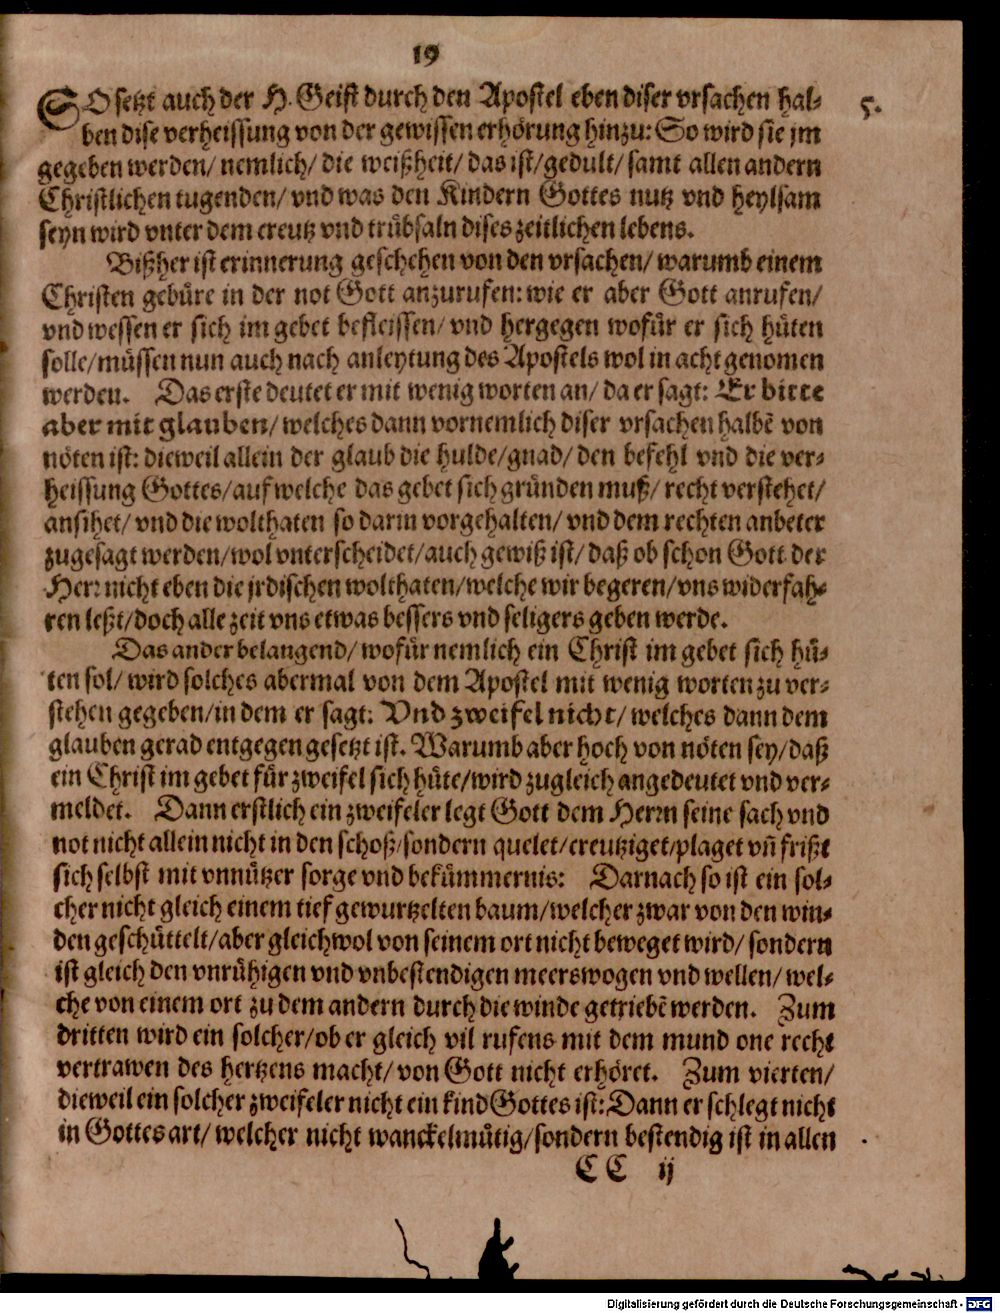 19
SO setzt auch der H. Geist durch den Apostel eben diser vrsachen hal-
5.
ben dise verheissung von der gewissen erhörung hinzu: So wird sie jm
gegeben werden/ nemlich/ die weißheit/ das ist/ gedult/ samt allen andern
Christlichen tugenden/ vnd was den Kindern Gottes nutz vnd heylsam
seyn wird vnter dem creutz vnd trübsaln dises zeitlichen lebens.
Bißher ist erinnerung geschehen von den vrsachen/ warumb einem
Christen gebüre in der not Gott anzurufen: wie er aber Gott anrufen/
vnd wessen er sich im gebet befleissen/ vnd hergegen wofür er sich hüten
solle/ müssen nun auch nach anleytung des Apostels wol in acht genomen
werden. Das erste deutet er mit wenig worten an/ da er sagt: Er bitte
aber mit glauben/ welches dann vornemlich diser vrsachen halbẽ von
nöten ist: dieweil allein der glaub die hulde/ gnad/ den befehl vnd die ver-
heissung Gottes/ auf welche das gebet sich gründen muß/ recht verstehet/
ansihet/ vnd die wolthaten so darin vorgehalten/ vnd dem rechten anbeter
zugesagt werden/ wol vnterscheidet/ auch gewiß ist/ daß ob schon Gott der
Herr nicht eben die jrdischen wolthaten/ welche wir begeren/ vns widerfah-
ren leßt/ doch alle zeit vns etwas bessers vnd seligers geben werde.
Das ander belangend/ wofür nemlich ein Christ im gebet sich hü-
ten sol/ wird solches abermal von dem Apostel mit wenig worten zu ver-
stehen gegeben/ in dem er sagt: Vnd zweifel nicht/ welches dann dem
glauben gerad entgegen gesetzt ist. Warumb aber hoch von nöten sey/ daß
ein Christ im gebet für zweifel sich hüte/ wird zugleich angedeutet vnd ver-
meldet. Dann erstlich ein zweifeler legt Gott dem Herrn seine sach vnd
not nicht allein nicht in den schoß/ sondern quelet/ creutziget/ plaget vñ frißt
sich selbst mit vnnützer sorge vnd bekümmernis: Darnach so ist ein sol-
cher nicht gleich einem tief gewurtzelten baum/ welcher zwar von den win-
den geschüttelt/ aber gleichwol von seinem ort nicht beweget wird/ sondern
ist gleich den vnrühigen vnd vnbestendigen meerswogen vnd wellen/ wel-
che von einem ort zu dem andern durch die winde getriebẽ werden. Zum
dritten wird ein solcher/ ob er gleich vil rufens mit dem mund one recht
vertrawen des hertzens macht/ von Gott nicht erhöret. Zum vierten/
dieweil ein solcher zweifeler nicht ein kind Gottes ist: Dann er schlegt nicht
in Gottes art/ welcher nicht wanckelmütig/ sondern bestendig ist in allen
CC ij
Digitalisierung gefördert durch die Deutsche Forschungsgemeinschaft - DFG